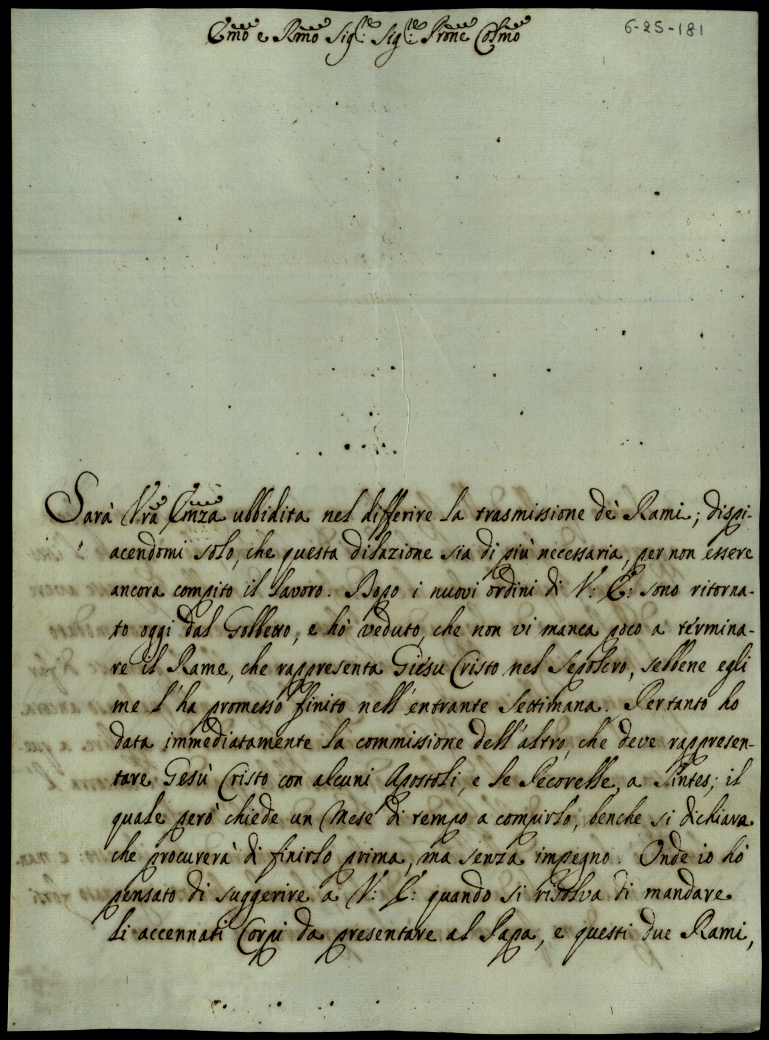 Emo e Rmo Sig.r Sig.r Prone Colmo
6-25-181
Sarà Vrā Emza ubbidita nel differire la trasmissione dè Rami; dispi-
acendomi solo, che questa dilazione sia di più necessaria, per non essere
ancora compito il lavoro. Dopo i nuovi ordini di V: E: sono ritorna-
to oggi dal Gobbetto, e hò veduto, che non vi manca poco a termina-
re il Rame, che rappresenta Giesu Cristo nel Sepolcro, sebbene egli
me l'ha promesso finito nell'entrante Settimana. Pertanto ho
data immediatamente la commissione dell'altro, che deve rappresen-
tare Gesù Cristo con alcuni Apostoli, e le Pecorelle, a Pintes; il
quale però chiede un Mese di tempo a compirlo, benche si dichiara
che procurerà di finirlo prima, ma senza impegno. Onde io hò
pensato di suggerire a V: E: quando si risolva di mandare
li accennati Corpi da presentare al Papa, e questi due Rami,